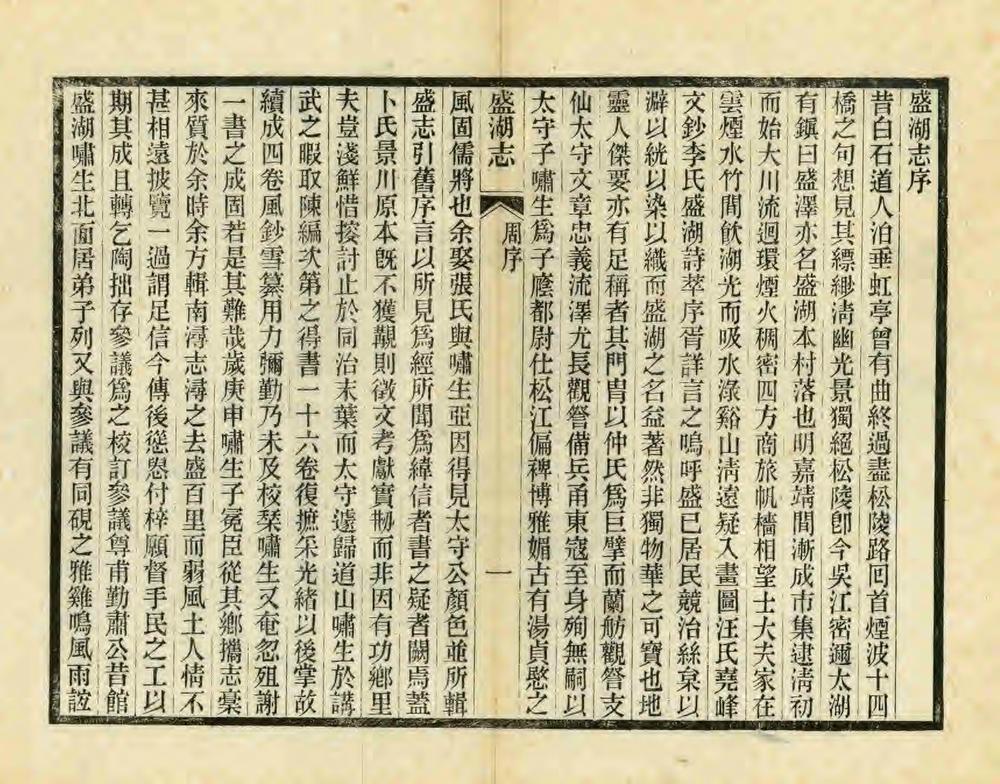 盛湖志序
昔白石道人泊垂虹亭曾有曲終過盡松陵路回首煙波十四
橋之句想見其縹緲淸幽光景獨絕松陵卽今吳江密邇太湖
有鎭曰盛澤亦名盛湖本村落也明嘉靖間漸成市集逮淸初
而始大川流迴環煙火稠密四方商旅帆檣相望士大夫家在
雲煙水竹間飮湖光而吸水淥谿山淸遠疑入畫圖汪氏堯峰
文鈔李氏盛湖詩萃序胥詳言之嗚呼盛已居民競治絲枲以
澼以絖以染以織而盛湖之名益著然非獨物華之可寶也地
靈人傑要亦有足稱者其門冑以仲氏爲巨擘而蘭舫觀詧支
仙太守文章忠義流澤尤長觀詧備兵甬東寇至身殉無嗣以
太守子嘯生爲子廕都尉仕松江偏裨博雅媚古有湯貞愍之
盛湖志
周序
一
風固儒將也余娶張氏與嘯生亞因得見太守公顏色並所輯
盛志引舊序言以所見爲經所聞爲緯信者書之疑者闕焉蓋
卜氏景川原本旣不獲覯則徵文考獻實刱而非因有功鄉里
夫豈淺鮮惜搜討止於同治末葉而太守遽歸道山嘯生於講
武之暇取陳編次第之得書一十六卷復摭采光緒以後掌故
續成四卷風鈔雪纂用力彌勤乃未及校琹嘯生又奄忽殂謝
一書之成固若是其難哉歲庚申嘯生子冕臣從其鄉攜志稾
來質於余時余方輯南潯志潯之去盛百里而弱風土人情不
甚相遠披覽一過謂足信今傳後慫恿付梓願督手民之工以
期其成且轉乞陶拙存參議爲之校訂參議尊甫勤肅公昔館
盛湖嘯生北面居弟子列又與參議有同硯之雅雞鳴風雨誼